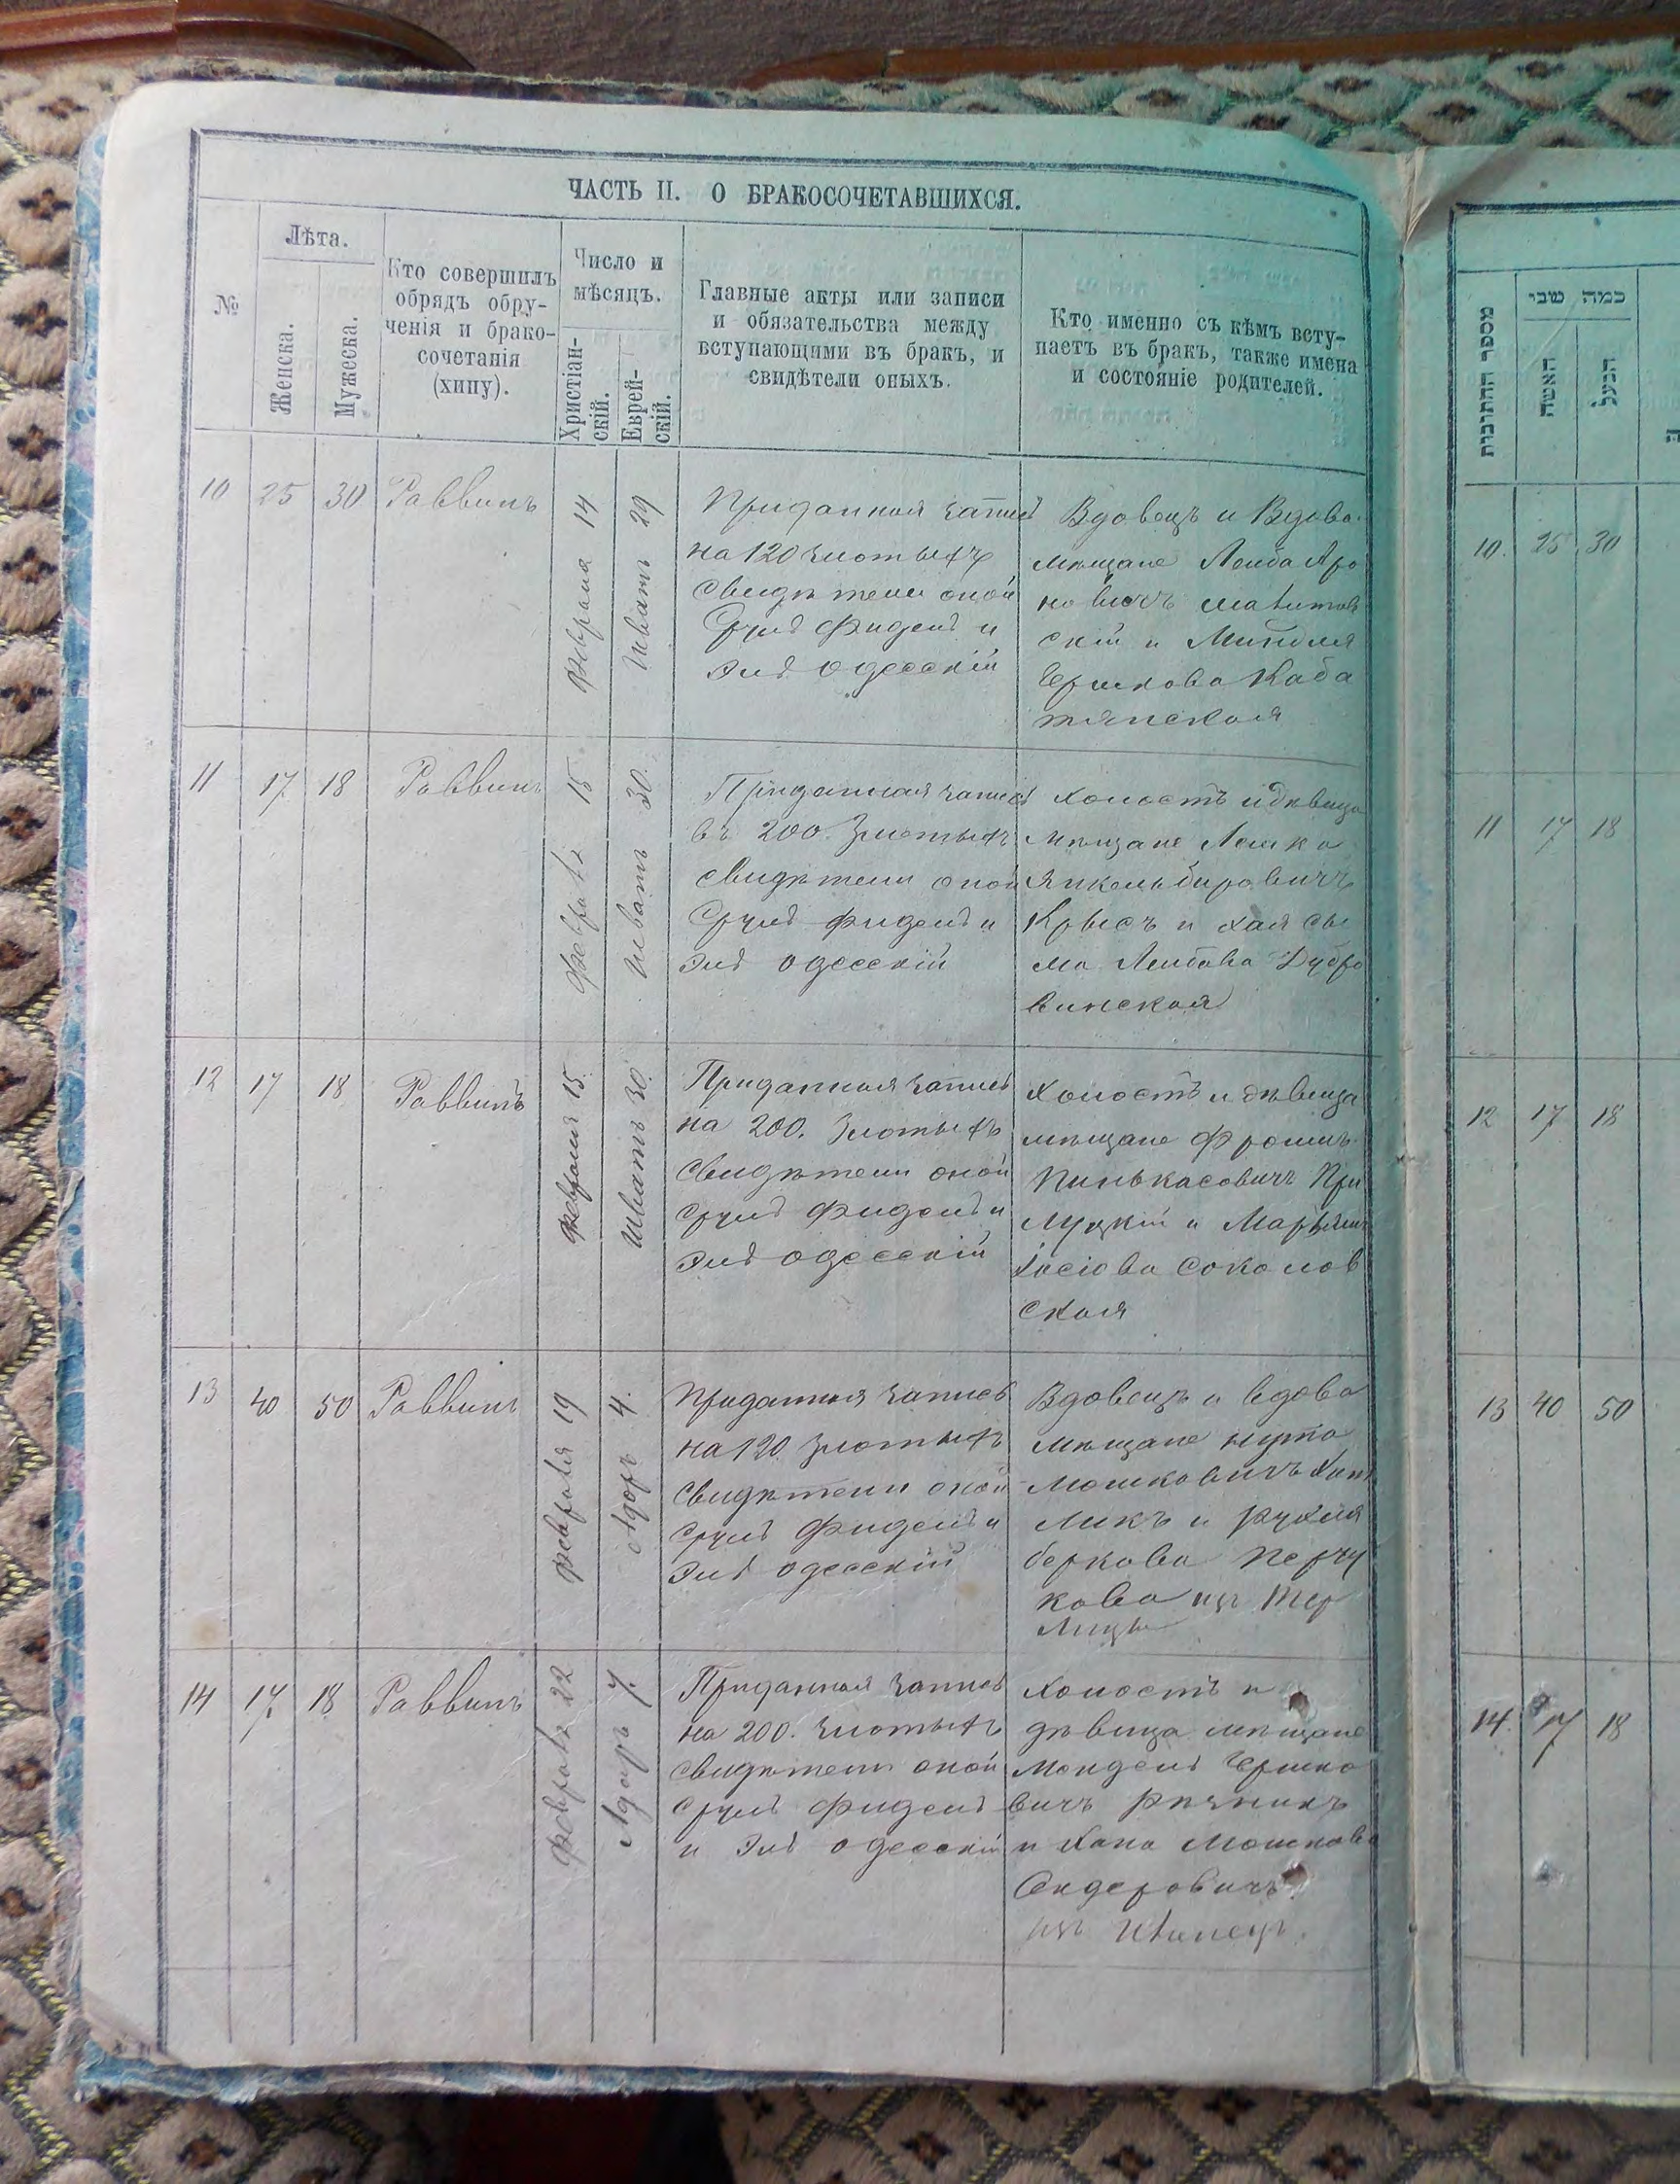 ЧАСТЬ II. О БРАКОСОЧЕТАВШИХСЯ.
№
Лѣта.
Женска.
Мужеска.
Кто совершилъ
обрядъ обру-
ченія и брако-
сочетанія
(хипу).
Число и
мѣсяцъ.
Христіан-
скій.
Еврей-
скій.
Главные акты или записи
и обязательства между
вступающими въ бракъ, и
свидѣтели оныхъ.
Кто именно съ кѣмъ всту-
паетъ въ бракъ, также имена
и состояніе родителей.
10
25
30
Раввинъ
февраля 14
Шватъ 29
Приданная запись
на 120 злотыхъ
свидѣтели оной
Сруль Фидель и
Эль Одесскій
Вдовецъ и Вдова
мѣщане Лейба Аро
новичъ
скій и
Ершкова Каба
тянская
11
17
18
Раввинъ
февраля 15
Шватъ 30.
Приданная запись
въ 200 злотыхъ
свидѣтели оной
Сруль Фидель и
Эль Одесскій
Холостъ и дѣвица
мѣщане
Янкель беровичъ
Крысъ и Хая Сы
ма Лейбова Дубро
винская
12
17
18
Раввинъ
февраля 15.
Шватъ 30.
Приданная запись
на 200. Злотыхъ
свидѣтели оной
Сруль Фидель и
Эль Одесскій
Холостъ и дѣвица
мѣщане Фроимъ
Пинькасовичъ При
луцкій и
Іосіова Соколов
ская
13
40
50
Раввинъ
февраля 19
Адаръ 4.
Приданная запись
на 120 злотыхъ
свидѣтели оной
Сруль Фидель и
Эль Одесскій
Вдовецъ и вдова
мѣщане Нута
Мошковичъ
ликъ и Рухля
беркова Перчу
кова изъ Тер
лицы
14
17.
18
Раввинъ
февраля 22
Адаръ 7.
Приданная запись
на 200. злотыхъ
свидѣтели оной
Сруль Фидель
и Эль Одесскій
Холостъ и
дѣвица мѣщане
Мендель Ершко
вичъ Рѣзникъ
и Хана Мошкова
Сендеровичъ
изъ
מספר החתונות
כמה שני
האשה
הבעל
10.
25
30
11
17
18
12
17
18
13
40
50
14.
17
18